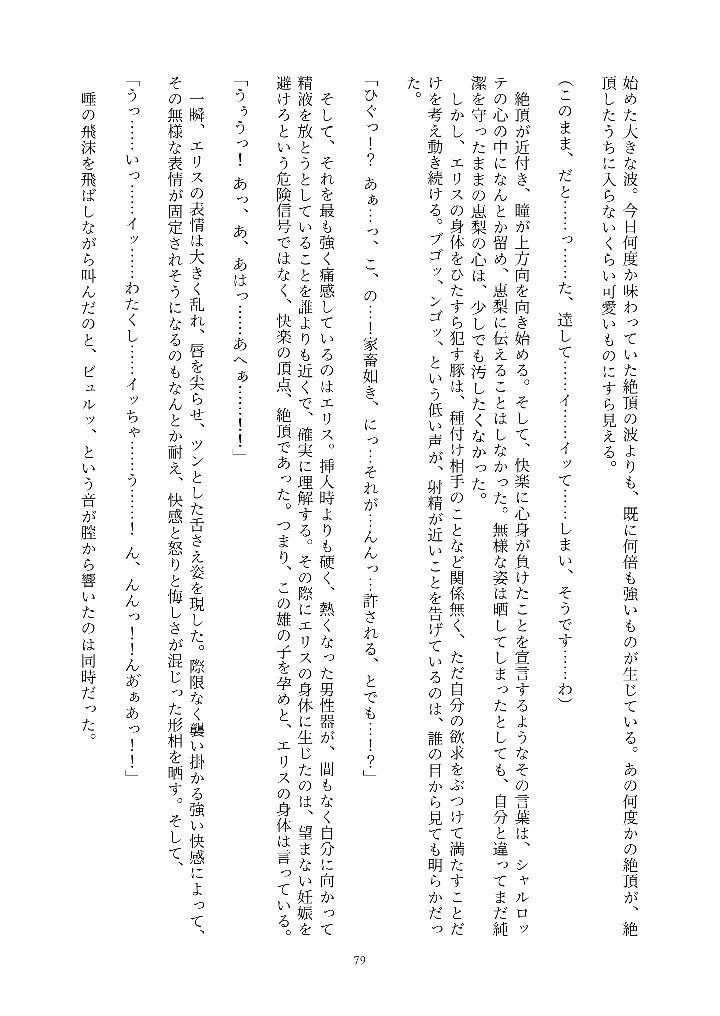 始めた大きな波。今日何度か味わっていた絶頂の波よりも、既に何倍も強いものが生じている。あの何度かの絶頂が、絶
頂したうちに入らないくらい可愛いものにすら見える。
（このまま、だと……っ……た、達して……イ……イッて……しまい、そうです……わ）
絶頂が近付き、瞳が上方向を向き始める。そして、快楽に心身が負けたことを宣言するようなその言葉は、シャルロッ
テの心の中になんとか留め、恵梨に伝えることはしなかった。無様な姿は晒してしまったとしても、自分と違ってまだ純
潔を守ったままの恵梨の心は、少しでも汚したくなかった。
しかし、エリスの身体をひたすら犯す豚は、種付け相手のことなど関係無く、ただ自分の欲求をぶつけて満たすことだ
けを考え動き続ける。ブゴッ、ンゴッ、という低い声が、射精が近いことを告げているのは、誰の目から見ても明らかだっ
た。
「ひぐっ！？　あぁ…っ、こ、の…！家畜如き、にっ…それが…んんっ…許される、とでも…！？」
そして、それを最も強く痛感しているのはエリス。挿入時よりも硬く、熱くなった男性器が、間もなく自分に向かって
精液を放とうとしていることを誰よりも近くで、確実に理解する。その際にエリスの身体に生じたのは、望まない妊娠を
避けろという危険信号ではなく、快楽の頂点、絶頂であった。つまり、この雄の子を孕めと、エリスの身体は言っている。
「うぅうっ！　あっ、あ、あはっ……あへぁ……！！」
一瞬、エリスの表情は大きく乱れ、唇を尖らせ、ツンとした舌さえ姿を現した。際限なく襲い掛かる強い快感によって、
その無様な表情が固定されそうになるのもなんとか耐え、快感と怒りと悔しさが混じった形相を晒す。そして、
「うっ……いっ……イッ……わたくし……イッちゃ……う……！　ん、んんっ！！んあ゛ぁあっ！！」
唾の飛沫を飛ばしながら叫んだのと、ビュルッ、という音が膣から響いたのは同時だった。
79